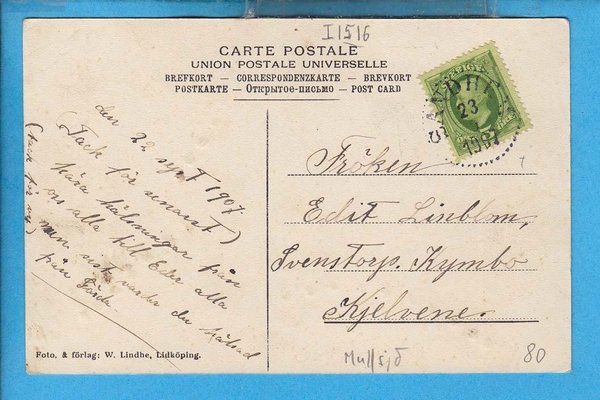 I1516
CARTE POSTALE
UNION POSTALE UNIVERSELLE
BREFKORT — CORRESPONDENZKARTE — BREVKORT
POSTKARTE — Открытое-письмо — POST CARD
SVERIGE
23
1907
den 22 sept 1907.
(Tack för senast)
kära hälsningar från
oss alla till Eder alla
men sist du hälsad
från Gerda
(tack för
Fröken
Edit Linblom,
Svenstorp. Kymbo
Kjelvene.
Foto. & förlag: W. Lindhe, Lidköping.
Mullsjö
80